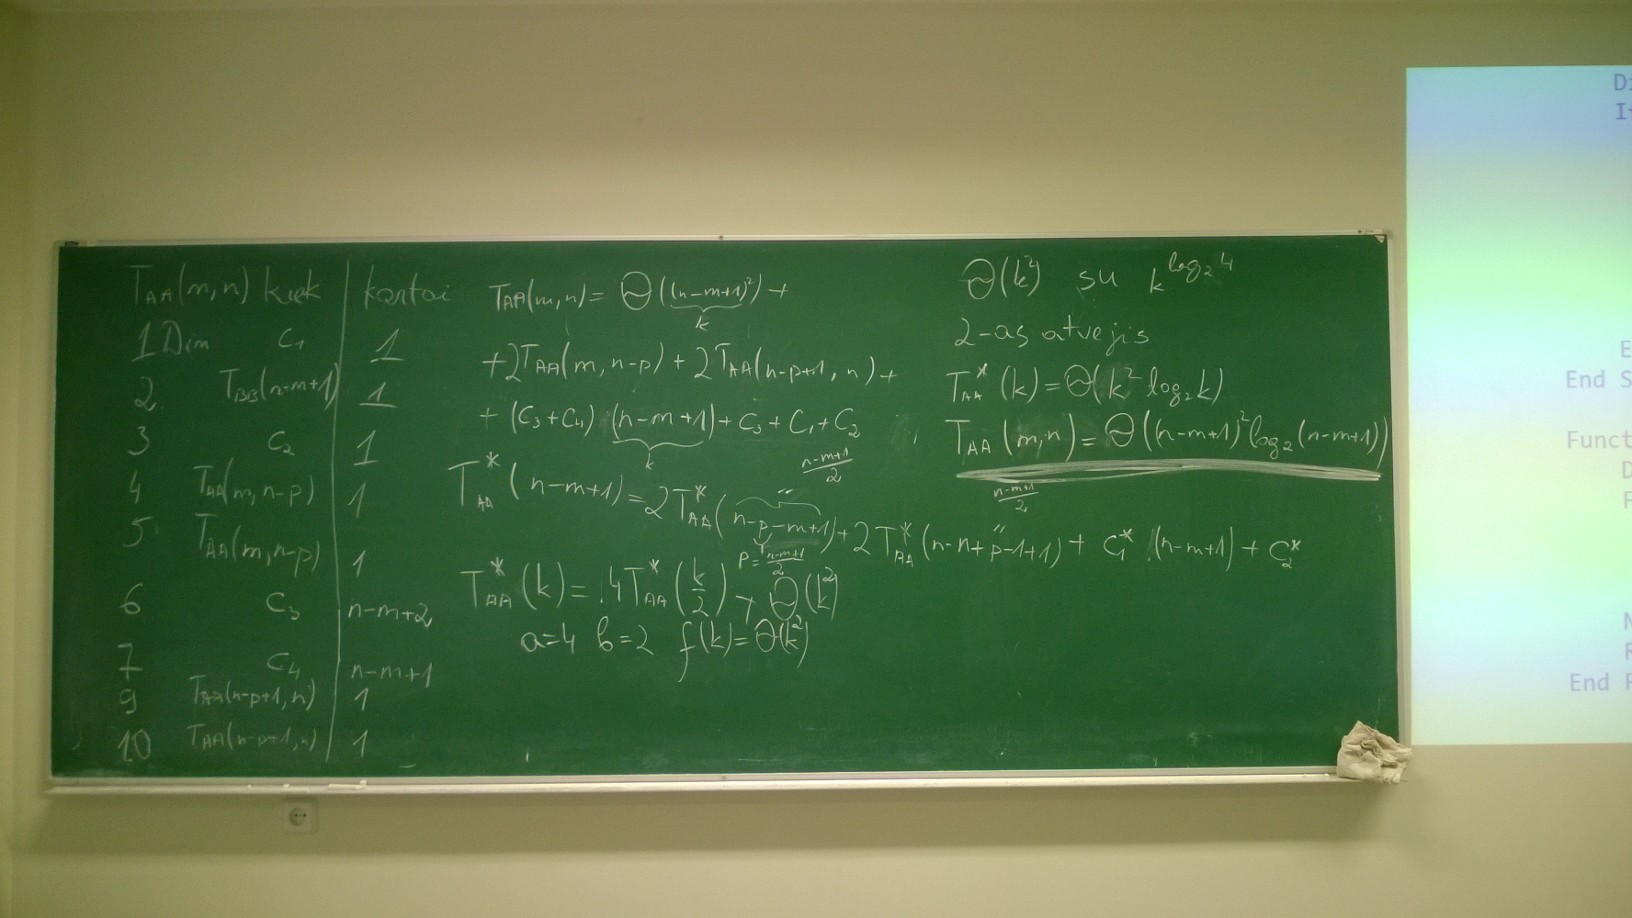 T_AA(m,n) kiek | kartai
1 Dim C₁ | 1
2 T_BB(n-m+1) | 1
3 C₂ | 1
4 T_AA(m,n-p) | 1
5 T_AA(m,n-p) | 1
6 C₃ | n-m+2
7 C₄ | n-m+1
9 T_AA(n-p+1,n) | 1
10 T_AA(n-p+1,n) | 1
T_AA(m,n) = Θ((n-m+1)²) +
k
+2T_AA(m,n-p) + 2T_AA(n-p+1,n) +
+ (C₃+C₄)·(n-m+1) + C₃ + C₁ + C₂
k
(n-m+1)/2
T*_AA(n-m+1) = 2T*_AA(n-p-m+1) + 2T*_AA(n-n+p-1+1) + C₁*·(n-m+1) + C₂*
p = (n-m+1)/2
(n-m+1)/2
T*_AA(k) = 4T*_AA(k/2) + Θ(k²)
a=4 b=2 f(k)=Θ(k²)
Θ(k²) su k^log₂4
2-as atvejis
T*_AA(k) = Θ(k² log₂k)
T_AA(m,n) = Θ((n-m+1)² log₂(n-m+1))
End S
Funct
End